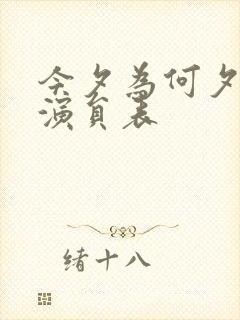 今夕為何夕
演員表
緒十八